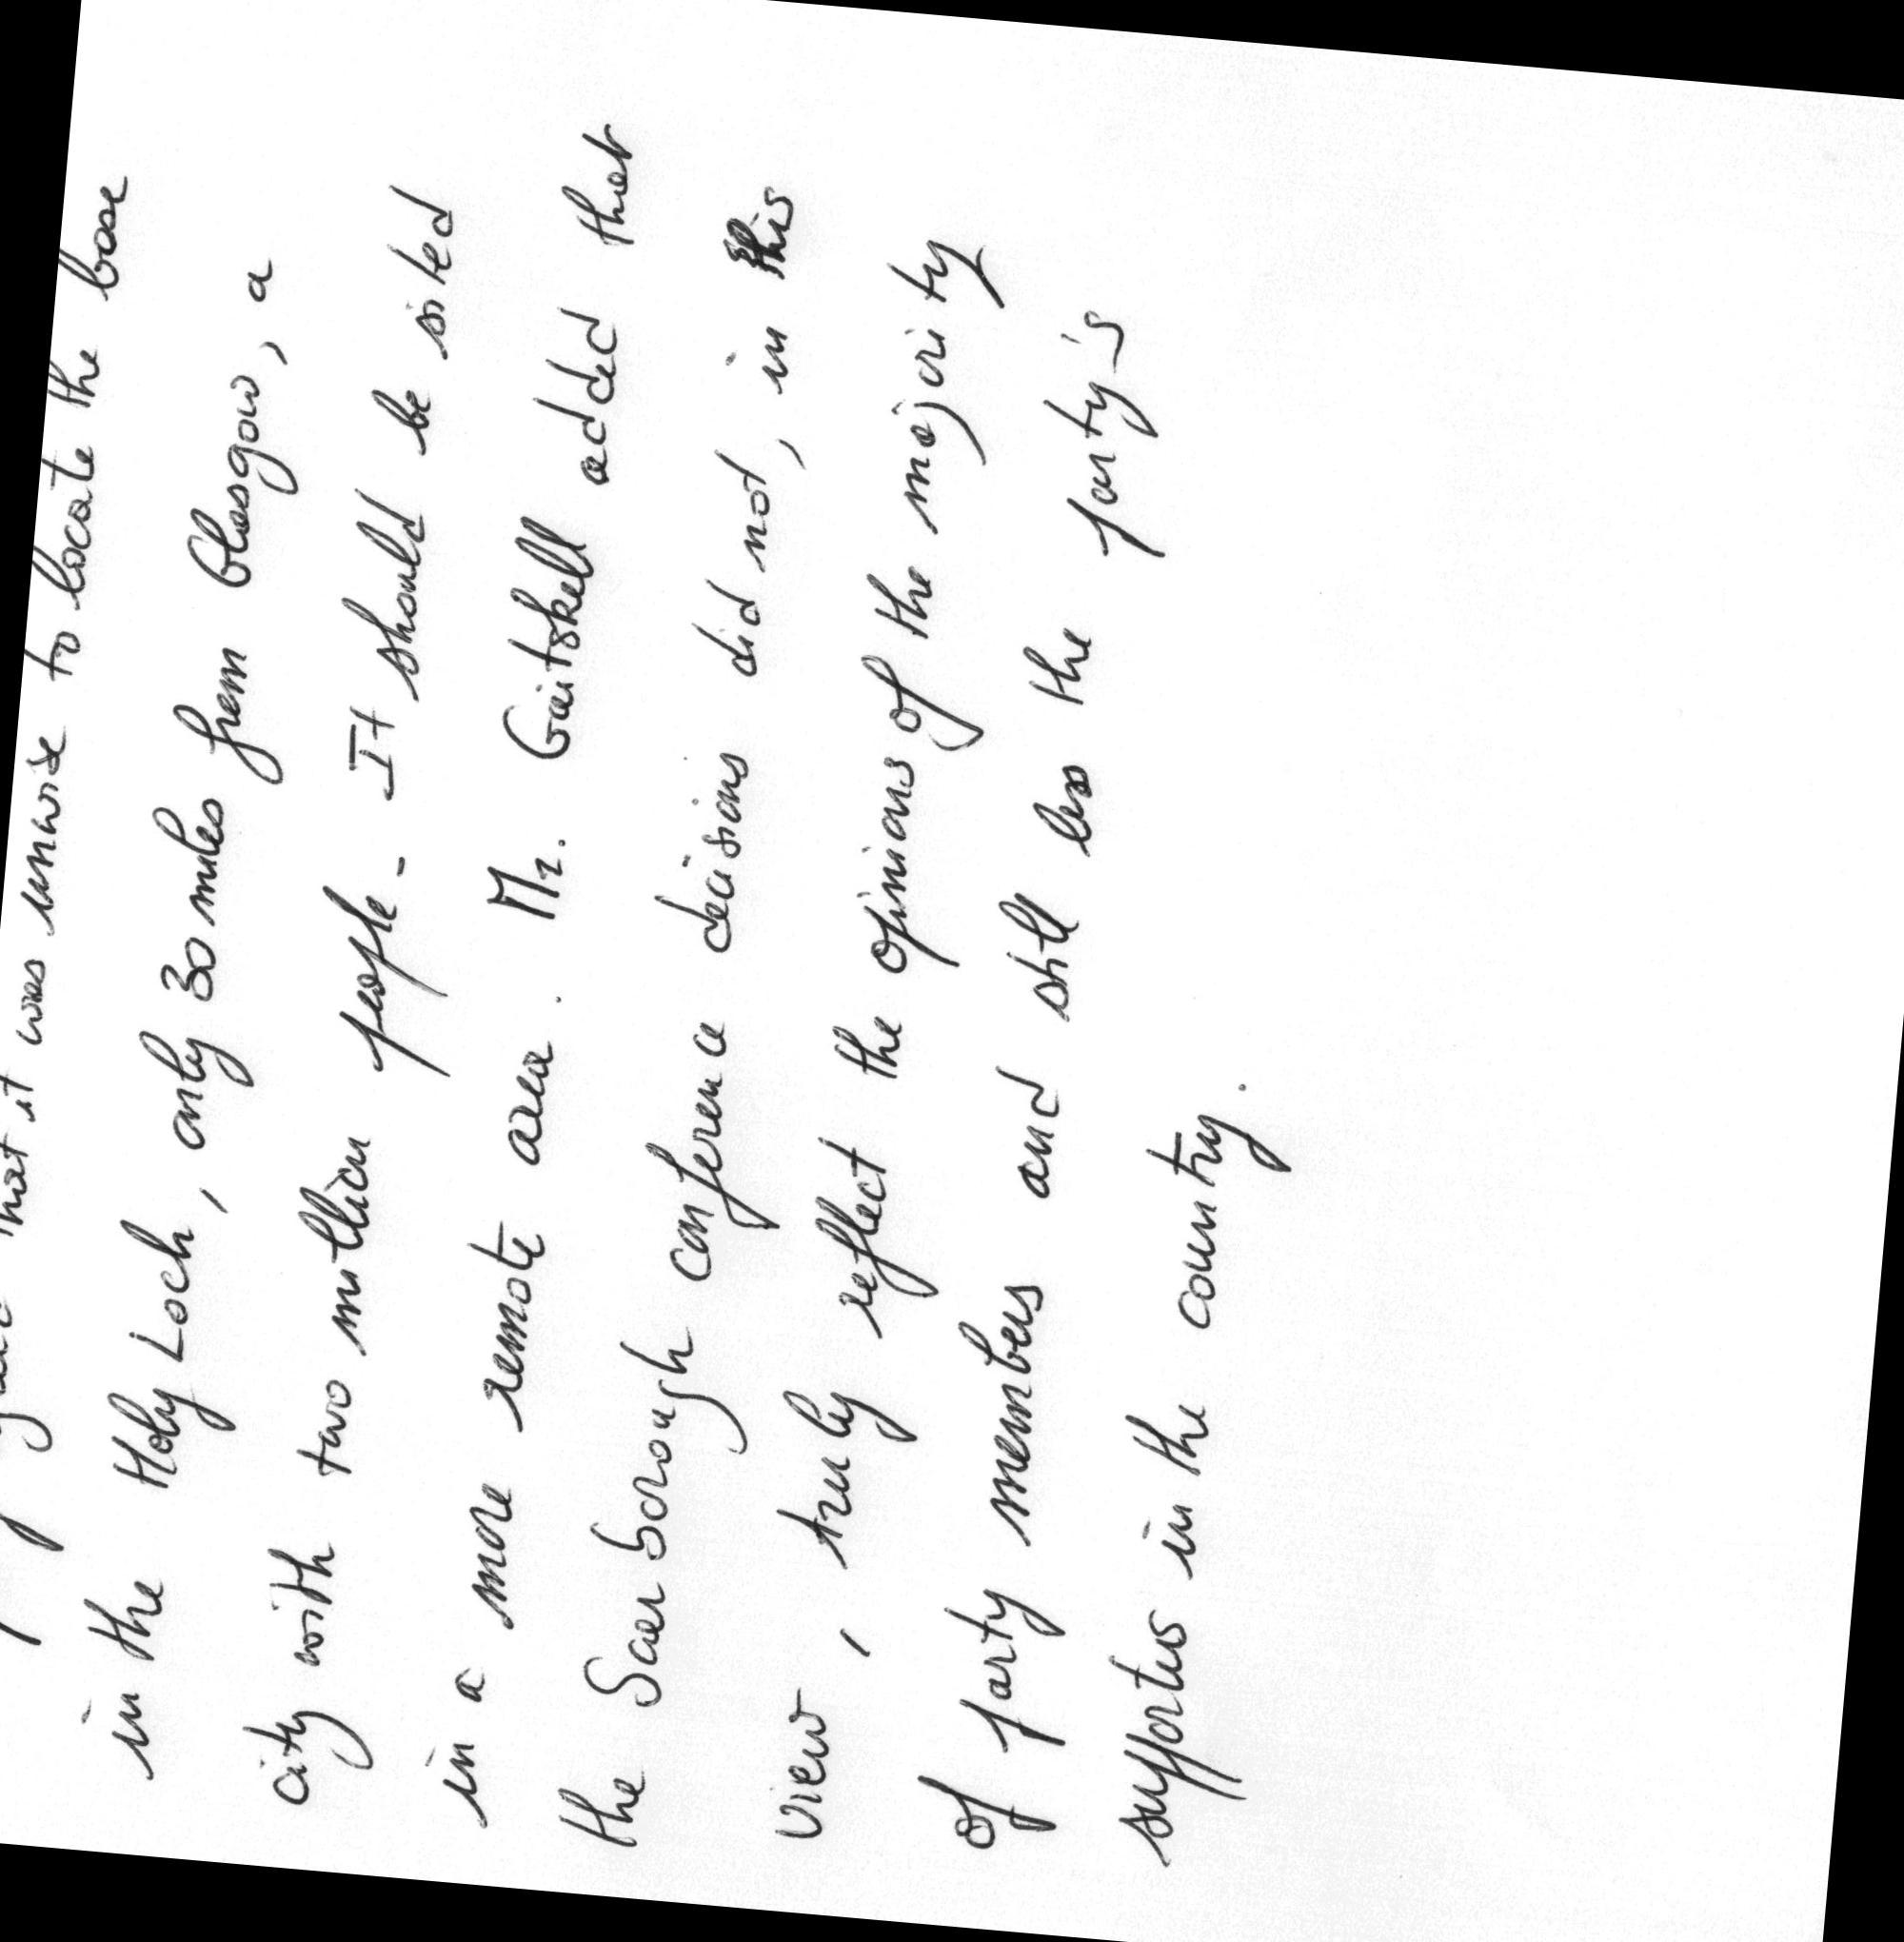 that it was unwise to locate the base
in the Holy Loch, only 30 miles from Glasgow, a
city with two million people - It should be sited
in a more remote area. Mr. Gaitskell added that
the Scarborough conference decisions did not, in this
view, truly reflect the opinions of the majority
of party members and still less the party's
supporters in the country.